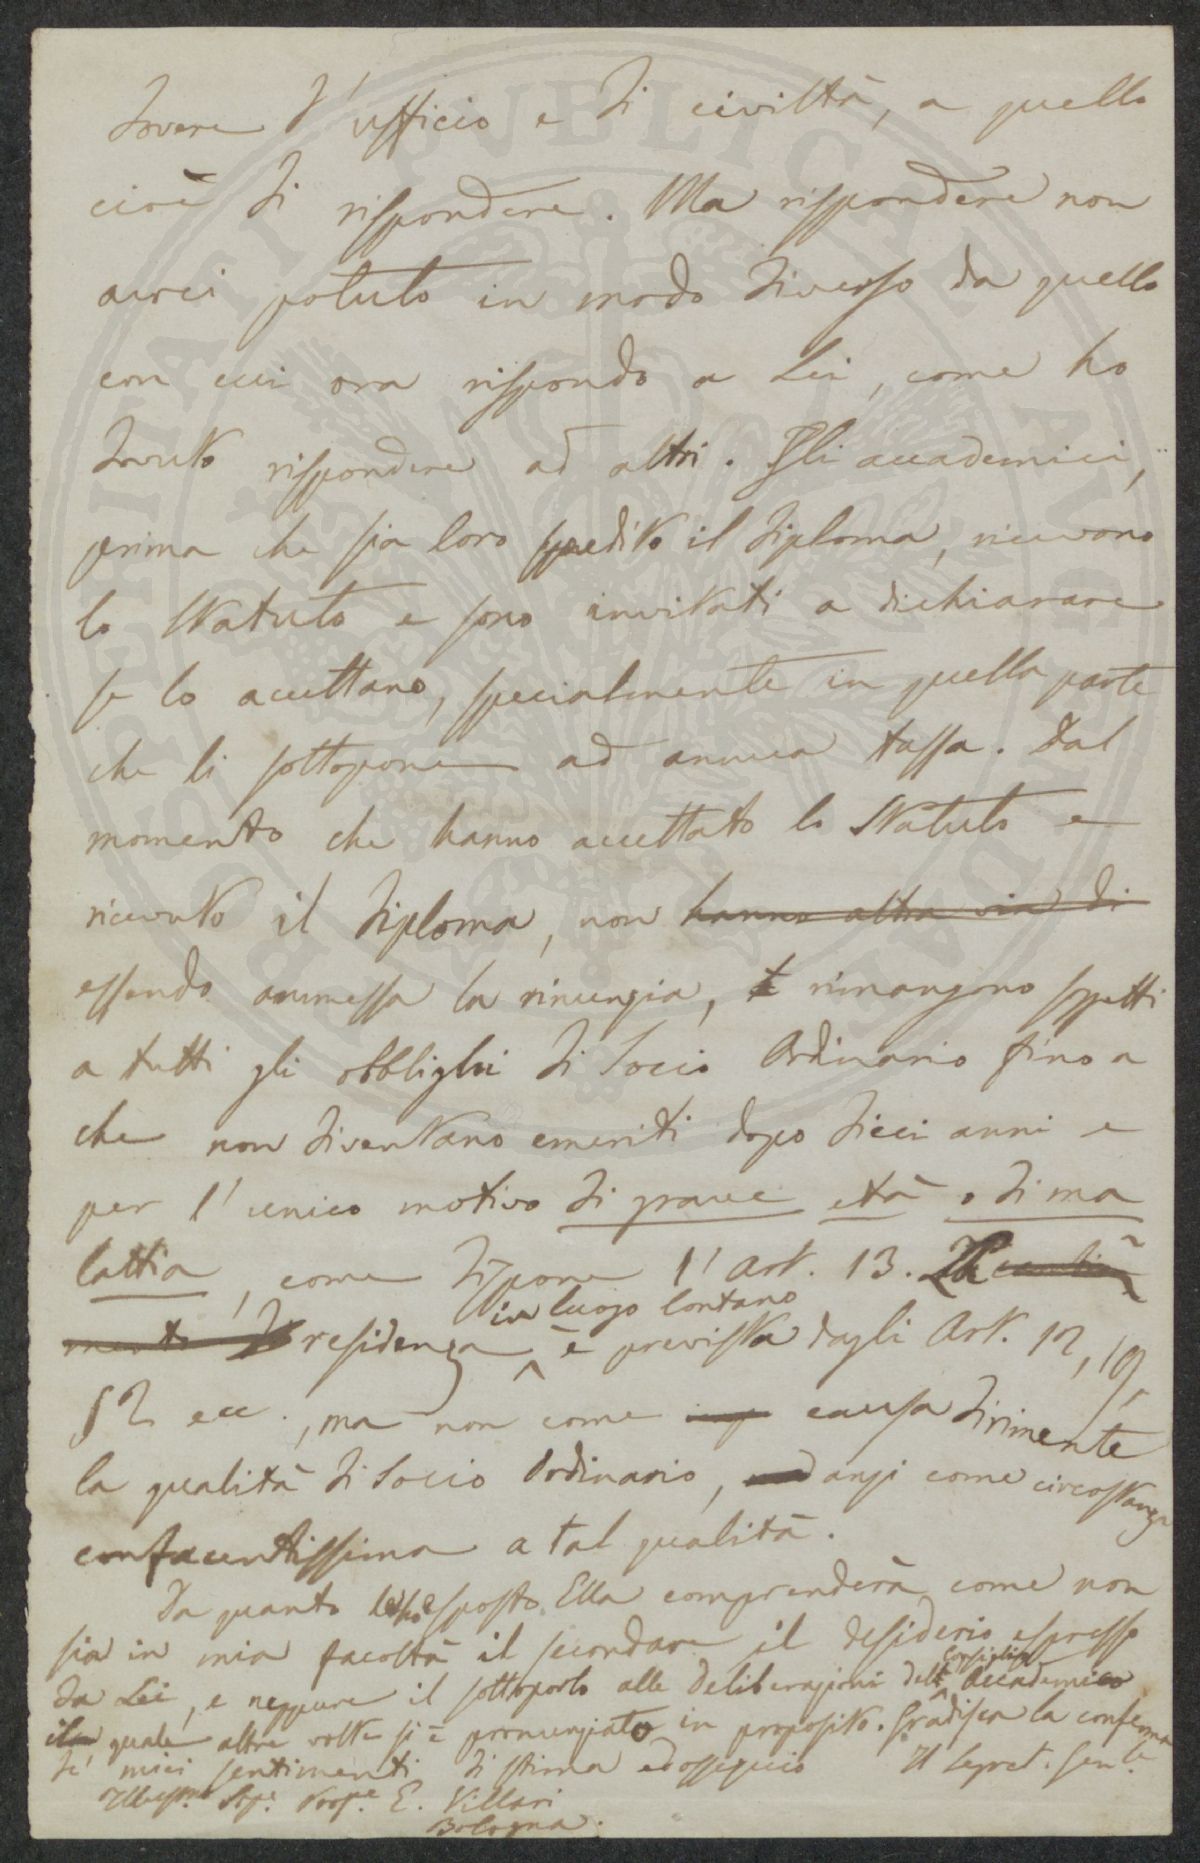 dovere d'ufficio e di civiltà, a quello
cioè di rispondere. Ma rispondere non
avrei potuto in modo diverso da quello
con cui ora rispondo a Lei, come ho
dovuto rispondere ad altri. Gli accademici,
prima che sia loro spedito il diploma, ricevono
lo Statuto e sono invitati a dichiarare
se lo accettano, specialmente in quella parte
che li sottopone ad annua tassa. Dal
momento che hanno accettato lo Statuto e
ricevuto il diploma, non hanno altra via di
essendo ammessa la rinunzia, rimangono soggetti
a tutti gli obblighi di Socio Ordinario fino a
che non diventano emeriti dopo dieci anni e
per l'unico motivo di grave età o di ma
lattia, come dispone l'Art. 13. La
in luogo lontano
residenza è prevista dagli Art. 12, 19,
§ 2 ecc., ma non come causa dirimente
la qualità di Socio Ordinario, anzi come circostanza
confacentissima a tal qualità.
Da quanto esposto Ella comprenderà come non
sia in mia facoltà il secondare il desiderio espresso
Consiglio
da Lei, e neppure il sottoporlo alle deliberazioni del Accademico
il quale altre volte si è pronunziato in proposito. Gradisca la conferma
de' miei sentimenti di stima ed ossequio Il Segret. Gen.le
Illust.mo Sig.r Prof.e E. Villari
Bologna.